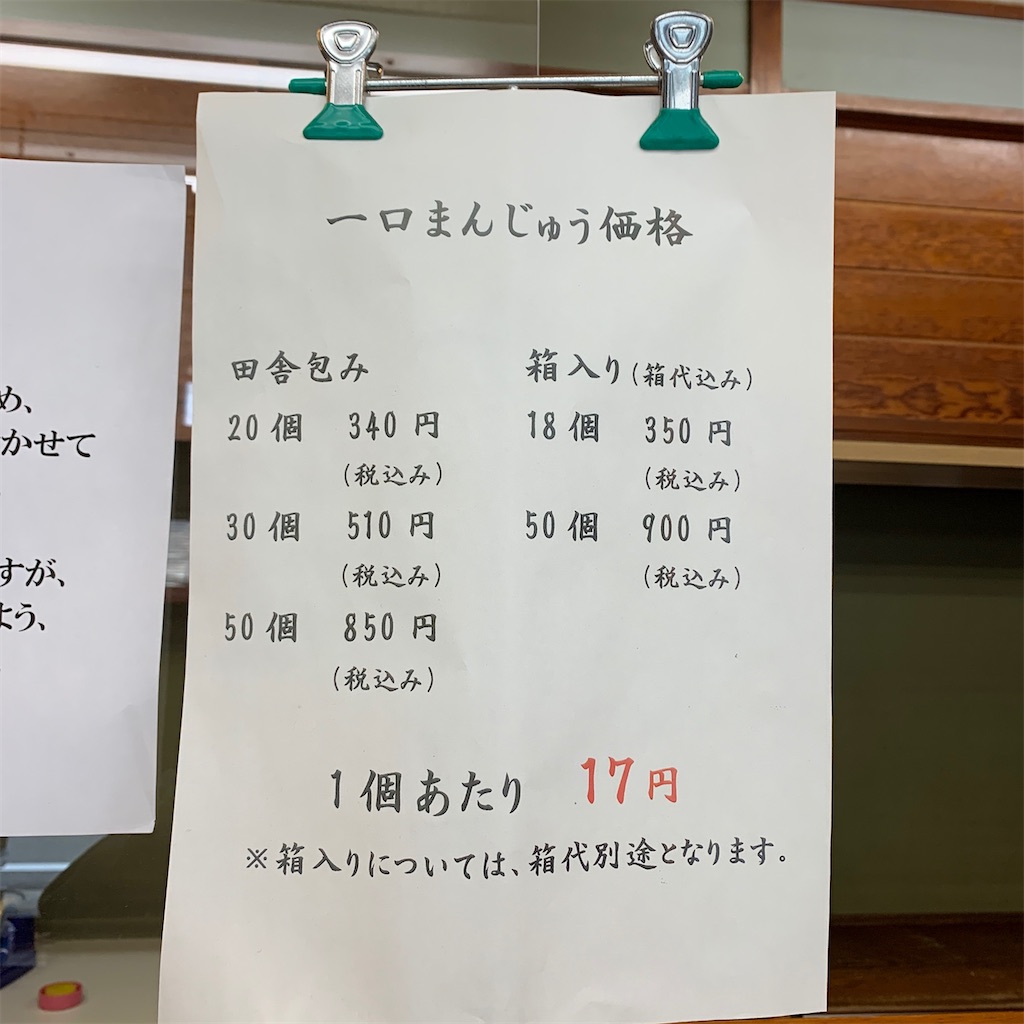 一口まんじゅう価格
田舎包み
20個 340円
(税込み)
30個 510円
(税込み)
50個 850円
(税込み)
箱入り(箱代込み)
18個 350円
(税込み)
50個 900円
(税込み)
1個あたり 17円
※箱入りについては、箱代別途となります。
め、
かせて
すが、
よう、